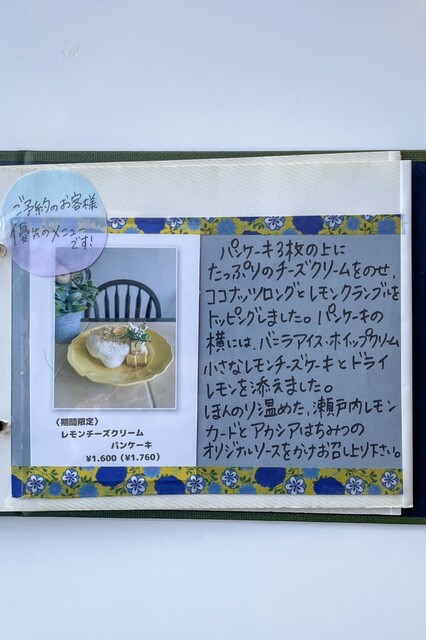 ご予約のお客様
優先のメニュー
です!
〈期間限定〉
レモンチーズクリーム
パンケーキ
¥1.600(¥1.760)
パンケーキ3枚の上に
たっぷりのチーズクリームをのせ、
ココナッツロングとレモンクランブルを
トッピングしました。パンケーキの
横には、バニラアイス・ホイップクリーム
小さなレモンチーズケーキとドライ
レモンを添えました。
ほんのり温めた、瀬戸内レモン
カードとアカシアはちみつの
オリジナルソースをかけお召し上り下さい。